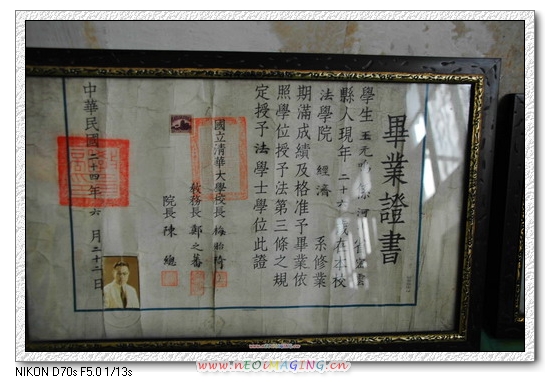 畢業證書
學生
縣人現年二十六歲在本校
法學院 經濟 系修業
期滿成績及格准予畢業依
照學位授予法第三條之規
定授予法學士學位此證
國立清華大學校長 梅貽琦
教務長 鄭之蕃
院長 陳總
中華民國二十四年六月二十二日
www.nEOiMAGING.cn
NIKON D70s F5.0 1/13s